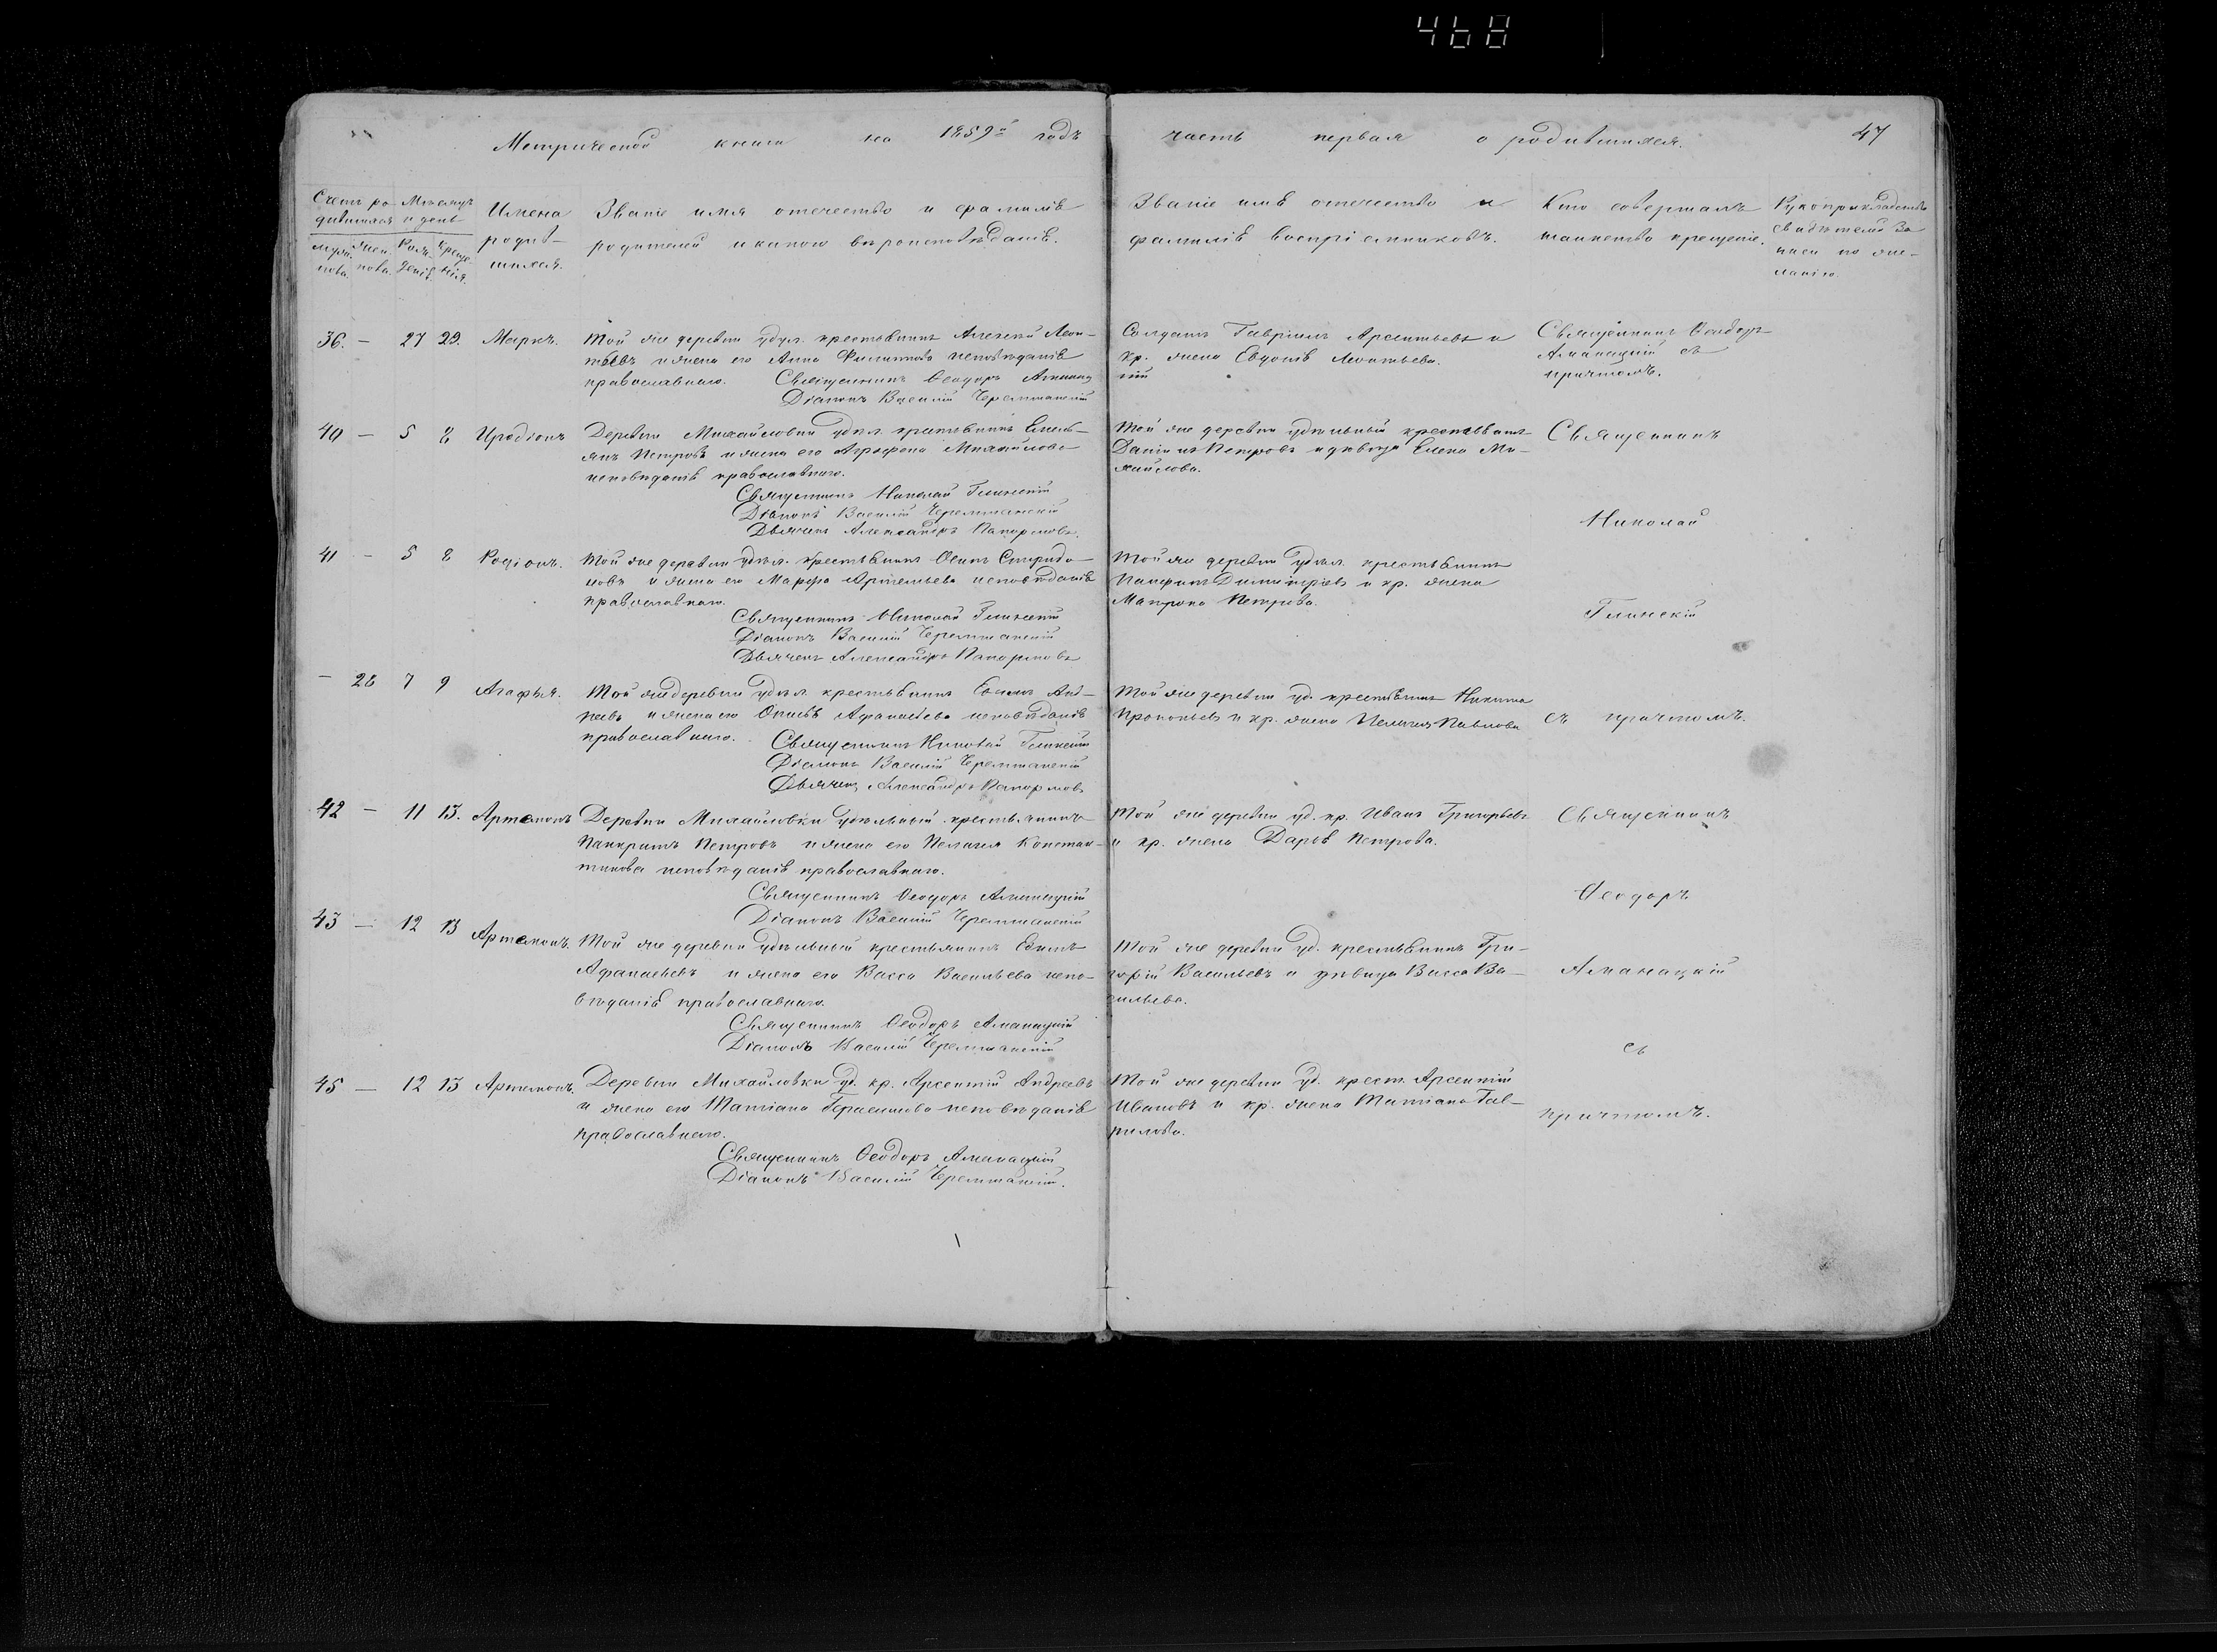 468
Метрической книги на 1859й годъ
часть первая о родившихся.
47
Счетъ ро- Мѣсяцъ
дившихся и день
муже- жен- Рож- Креще-
ска. ска. денія. нія.
Имена
родив-
шихся.
Званіе имя отечество и фамилія
родителей и какого вѣроисповѣданія.
Званіе имя отечество и
фамилія воспріемниковъ.
Кто совершалъ
таинство крещенія.
Рукоприкладство
свидѣтелей за-
писи по же-
ланію.
36. — 27 29. Маркъ.
Той же деревни удѣл. крестьянинъ Алексей Леон-
тьевъ и жена его Анна Филиппова исповѣданія
православнаго. Священникъ Ѳеодоръ
Діаконъ Василій Черемшанскій
Солдатъ Гавріилъ Арсентьевъ и
кр. жена Евдокія Леонтьева.
Священникъ Ѳеодоръ
Алманацкій съ
причтомъ.
40 — 5 8 Иродіонъ
Деревни Михайловки удѣл. крестьянинъ Емель-
янъ Петровъ и жена его Агрефена Михайлова
исповѣданія православнаго.
Священникъ Николай Глинскій
Діаконъ Василій Черемшанскій
Дьячекъ Александръ Папормовъ.
Той же деревни удѣльный крестьянинъ
Даніилъ Петровъ и дѣвица Елена Ми-
хайлова.
Священникъ
Николай
41 — 5 8 Родіонъ.
Той же деревни удѣл. крестьянинъ Осипъ Спиридо-
новъ и жена его Марфа Артемьева исповѣданія
православнаго.
Священникъ Николай Глинскій
Діаконъ Василій Черемшанскій
Дьячекъ Александръ Папормовъ
Той же деревни удѣл. крестьянинъ
Панфилъ Димитріевъ и кр. жена
Матрона Петрова.
Глинскій
— 28 7 9 Агафья.
Той же деревни удѣл. крестьянинъ Евсимъ Анд-
реевъ и жена его Оксинья Афанасьева исповѣданія
православнаго. Священникъ Николай Глинскій
Діаконъ Василій Черемшанскій
Дьячекъ Александръ Папормовъ
Той же деревни уд. крестьянинъ Никита
Прокопьевъ и кр. жена Пелагея Павлова
съ причтомъ.
42 — 11 13. Артемонъ
Деревни Михайловки удѣльный крестьянинъ
Панкратъ Петровъ и жена его Пелагея Констан-
тинова исповѣданія православнаго.
Священникъ Ѳеодоръ Алманацкій
Діаконъ Василій Черемшанскій
Той же деревни уд. кр. Иванъ Григорьевъ
и кр. жена Дарья Петрова.
Священникъ
Ѳеодоръ
43 — 12 13 Артемонъ.
Той же деревни удѣльный крестьянинъ Евимъ
Афанасьевъ и жена его Васса Васильева испо-
вѣданія православнаго.
Священникъ Ѳеодоръ Алманацкій
Діаконъ Василій Черемшанскій
Той же деревни уд. крестьянинъ Гри-
горій Васильевъ и дѣвица Васса Ва-
сильева.
Алманацкій
съ
45 — 12 13 Артемонъ.
Деревни Михайловки уд. кр. Арсентій Андреевъ
и жена его Татіана Герасимова исповѣданія
православнаго.
Священникъ Ѳеодоръ Алманацкій
Діаконъ Василій Черемшанскій.
Той же деревни уд. крест. Арсентій
Ивановъ и кр. жена Татіана Гав-
рилова.
причтомъ.